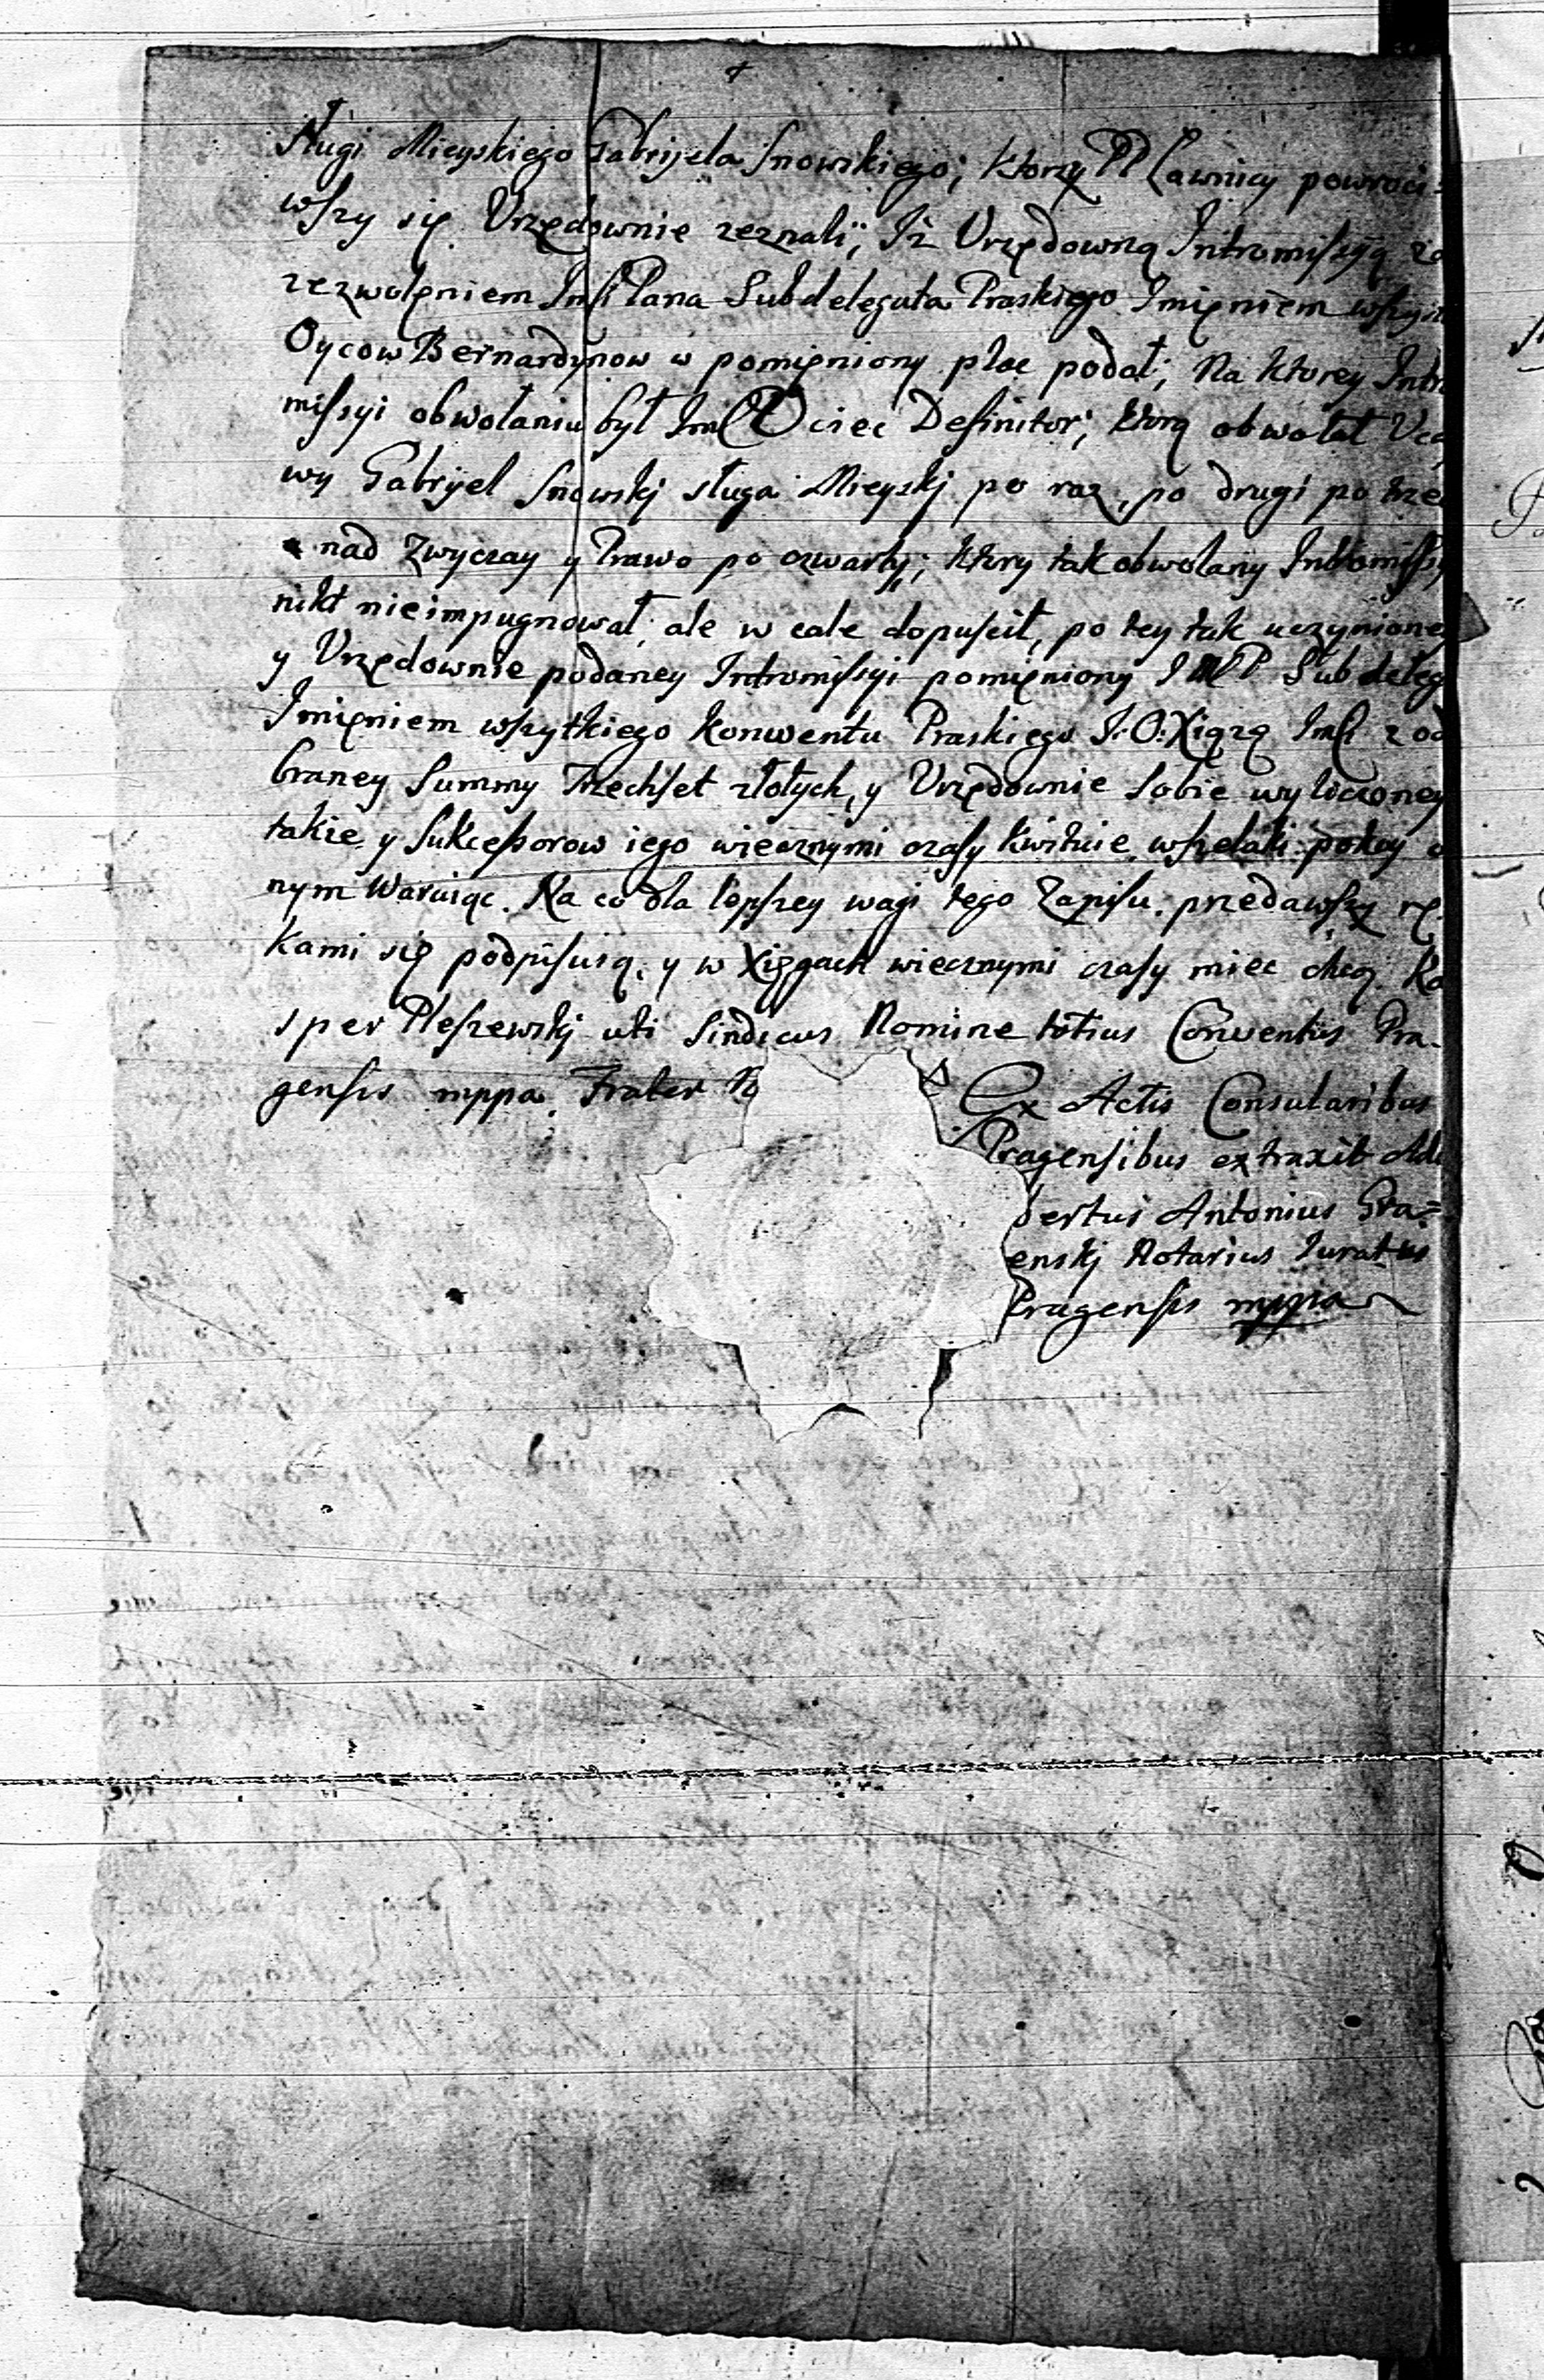 sługi Mieyskiego Gabryela Snowskiego; ktorzy PP Ławnicy powroci=
wszy się Vrzędownie zeznali, Iż Vrzędowną Intromissyą za
zezwolęniem Imsi Pana Subdelegata Praskiego Imięniem wszyst
Oycow Bernardynow w pomięniony plac podał; Na ktorey Intro
missyi obwołaniu był Imć Ociec Definitor; ktorą obwołał Vcz
wy Gabryel Snowskj sługa Mieyskj po raz, po drugi po trze
nad Zwyczay y Prawo po czwarty; ktory tak obwołany Intromissy
nikt nieimpugnował, ale w cale dopuścił, po tey tak uczynioney
y Vrzędownie podaney Intromissyi pomięniony IMP Subdeleg
Imięniem wszytkiego Konwentu Praskiego I:O:Xiążą Imći z od
braney Summy Trzechset złotych, y Vrzędownie sobie wyliczoney
takie y Sukcessorow iego wiecznymi czasy kwituie wszelaki pokoy o
nym Waruiąc. Na co dla lepszey wagi tego Zapisu przedawszy rę
kami się podpisuią, y w Xięgach wiecznymi czasy miec chcą. Ka
sper Pleszewskj uti Sindicus Nomine totius Conventus Pra-
gensis mppa. Frater
Ex Actis Consularibus
Pragensibus extraxit Adal
bertus Antonius Gra=
enskj Notarius Iuratus
Pragensis mppa